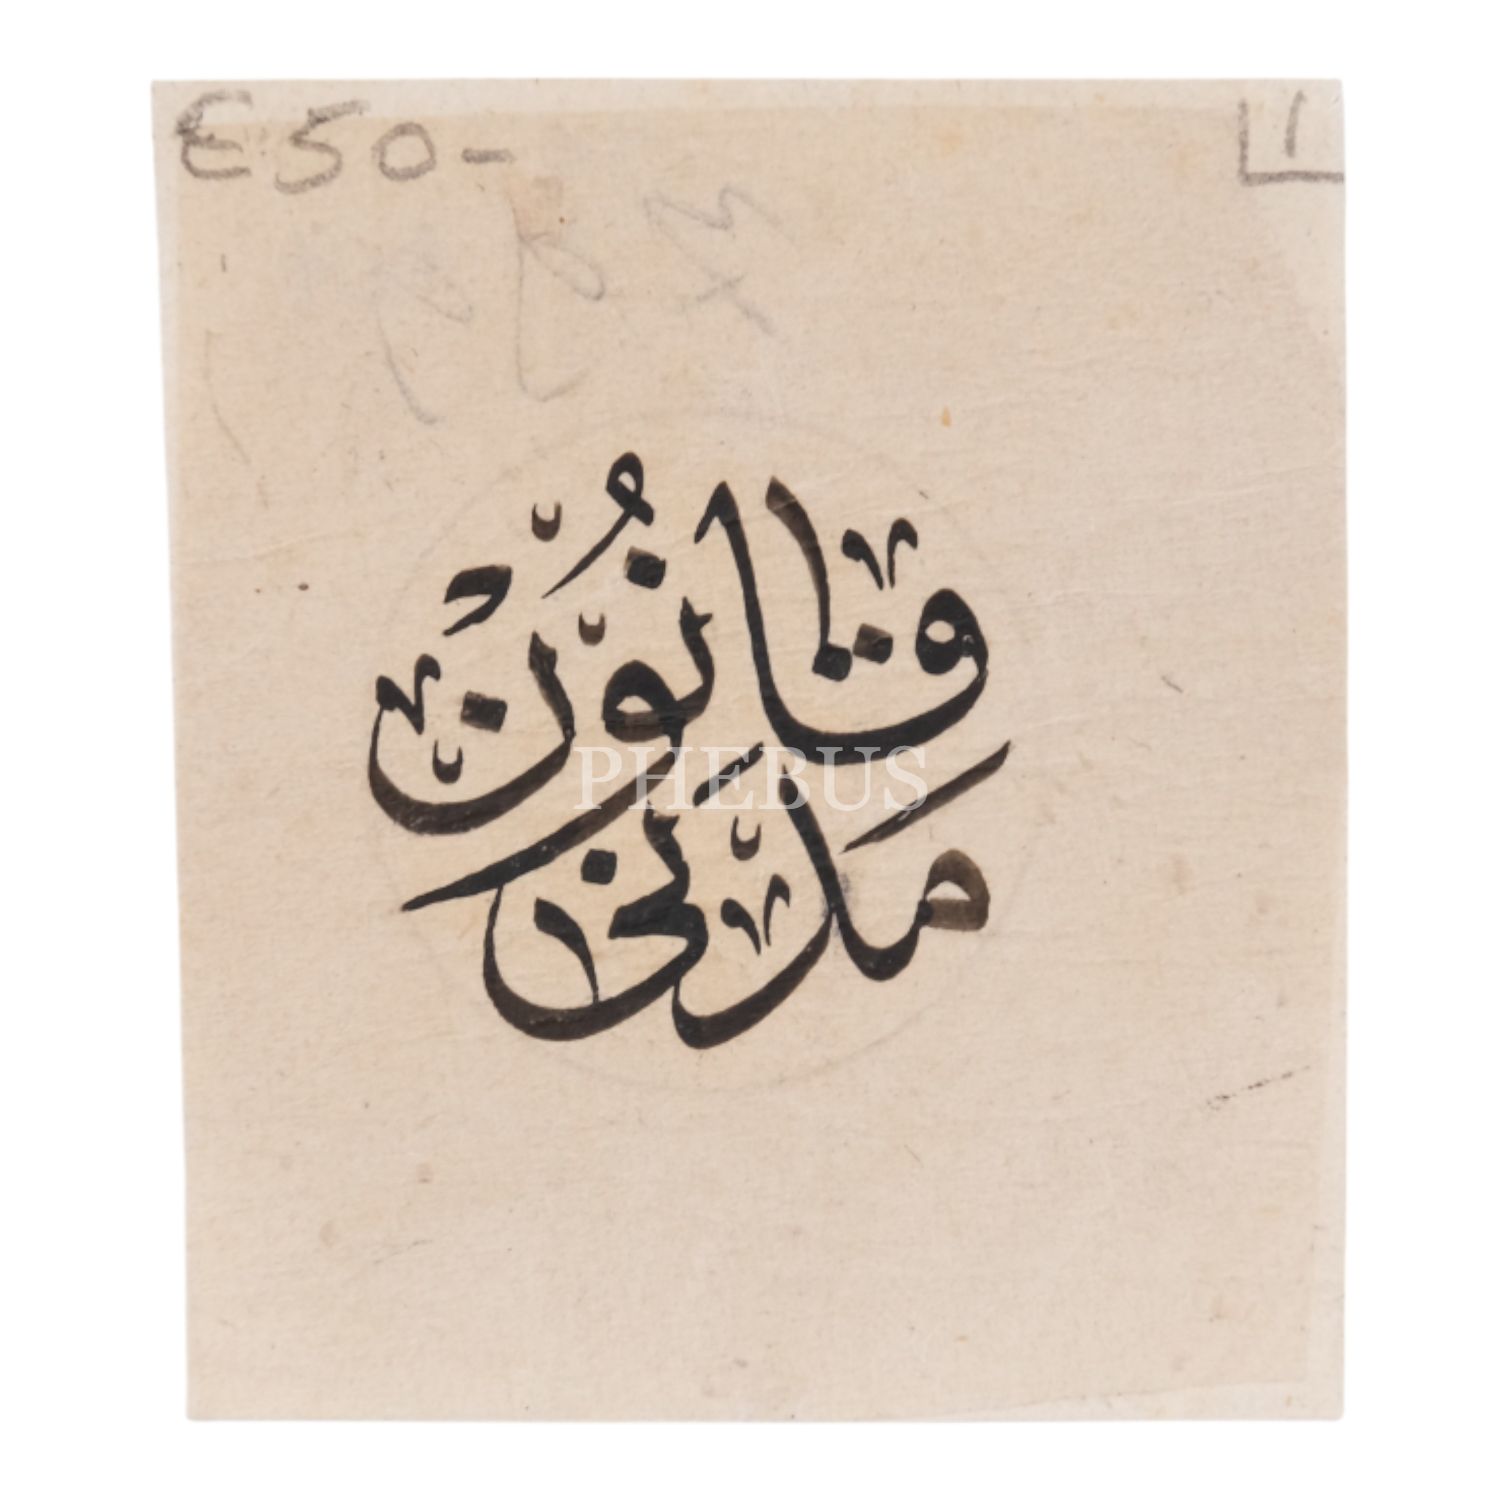 E50-
١
قَانُونْ
مَدَنی
PHEBUS